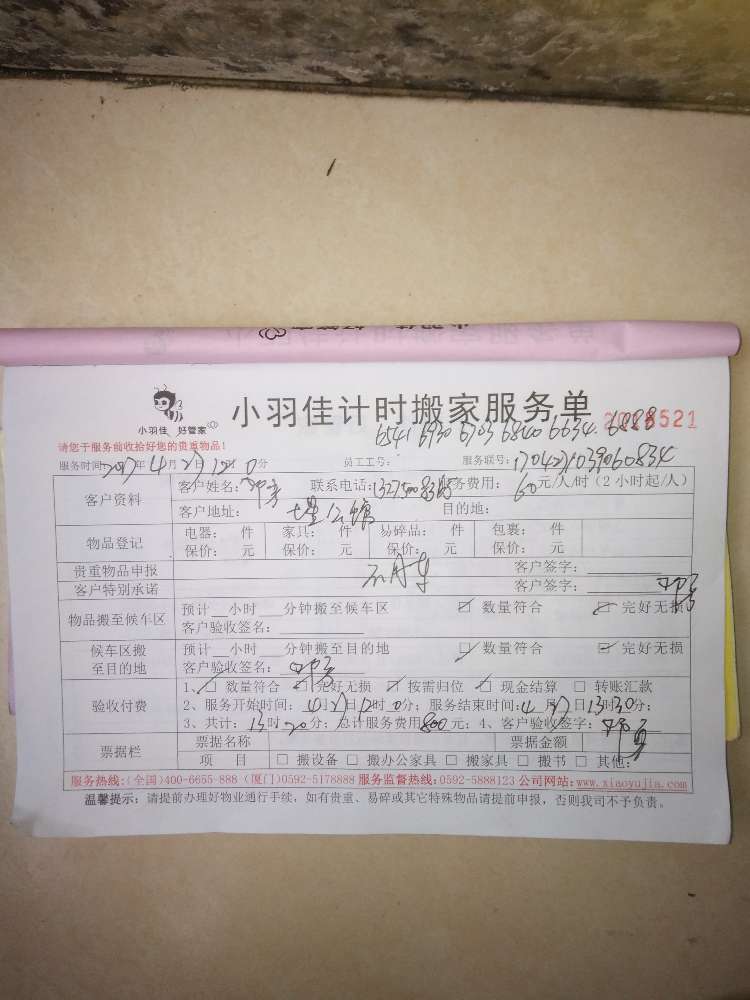 小羽佳 好管家
小羽佳计时搬家服务单
请您于服务前收拾好您的贵重物品!
6541 6930 6703 6840 6634. 6888
服务时间: 2017年4月27日12时0分 员工工号: 服务联号:
客户资料
客户姓名: 联系电话: 服务费用: 60元/人/时(2小时起/人)
客户地址: 目的地:
物品登记
电器: 件 家具: 件 易碎品: 件 包裹: 件
保价: 元 保价: 元 保价: 元 保价: 元
贵重物品申报 客户签字:
客户特别承诺 客户签字:
物品搬至候车区
预计 小时 分钟搬至候车区 ☑ 数量符合 ☑ 完好无损
客户验收签名:
候车区搬至目的地
预计 小时 分钟搬至目的地 ☑ 数量符合 ☑ 完好无损
客户验收签名:
验收付费
1、☑ 数量符合 ☑ 完好无损 ☑ 按需归位 ☑ 现金结算 □ 转账汇款
2、服务开始时间: 4月27日12时0分; 服务结束时间: 4月27日13时30分;
3、共计: 13时20分; 总计服务费用800元; 4、客户验收签字:
票据栏
票据名称 票据金额
项 目 □ 搬设备 □ 搬办公家具 □ 搬家具 □ 搬书 □ 其他:
服务热线:(全国)400-6655-888 (厦门)0592-5178888 服务监督热线:0592-5888123 公司网站:www.xiaoyujia.com
温馨提示: 请提前办理好物业通行手续, 如有贵重、易碎或其它特殊物品请提前申报, 否则我司不予负责。